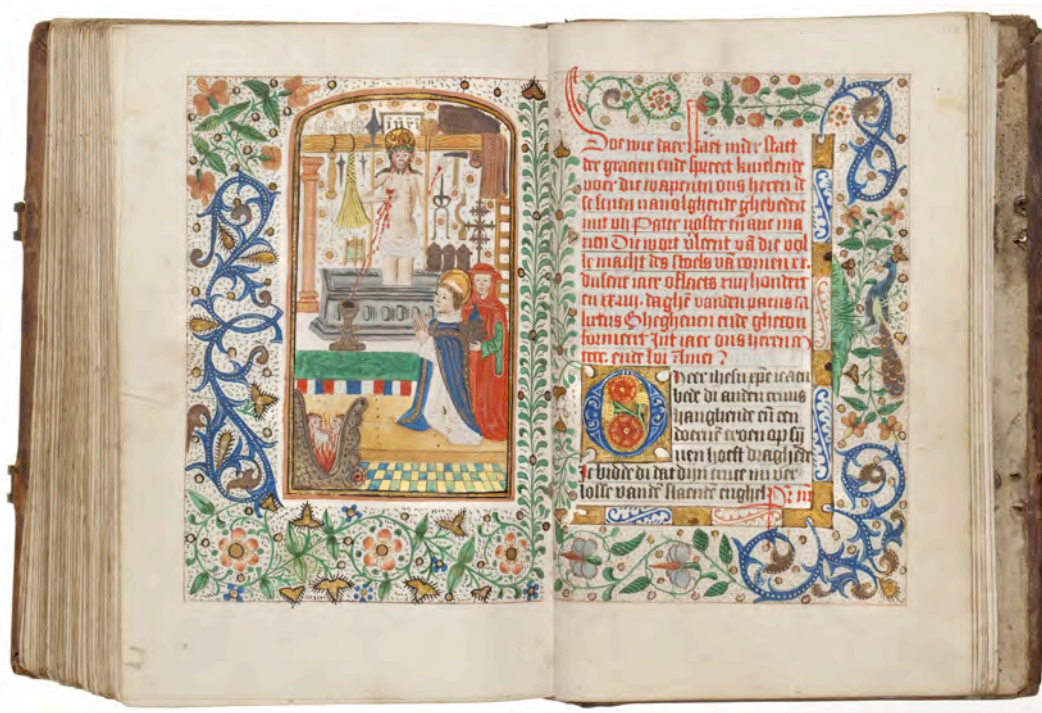 inri
Soe wie daer staet inder staet
der gracien ende spreect knielende
voer die wapenen ons heren de
se seuen nauolghende ghebeden
mit vij Pater noster en aue ma
rien Die wort verleent vā die vol
le macht des stoels vā romen xx.
dusent iaer oflaets
en xxiiij. daghē vanden paeus ca
lixtus Ghegheuen ende ghecon
formeert Int iaer ons heren
O heer ihesu xpe ic aen
bede di anden cruus
hanghende en een
doernē croen op dij
nen hoeft draghēde
Ic bidde di dat dijn cruce mi ver
losse vandē slaende enghel Pr nr